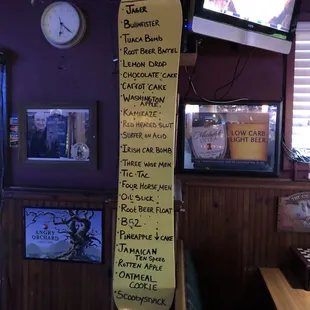 · Jager
· Bullmeister
· Tuaca Bomb
· Root Beer Barrel
· Lemon Drop
· Chocolate Cake
· Carrot Cake
· Washington
Apple
· Kamikaze
· Red Headed Slut
· Surfer on Acid
· Irish Car Bomb
· Three Wise Men
· Tic-Tac
· Four Horsemen
· Oil Slick
· Root Beer Float
· B52
· Pineapple ↓ Cake
· Jamaican
Ten Speed
· Rotten Apple
· Oatmeal
Cookie
· Scoobysnack
LOW CARB
LIGHT BEER
ANGRY
ORCHARD